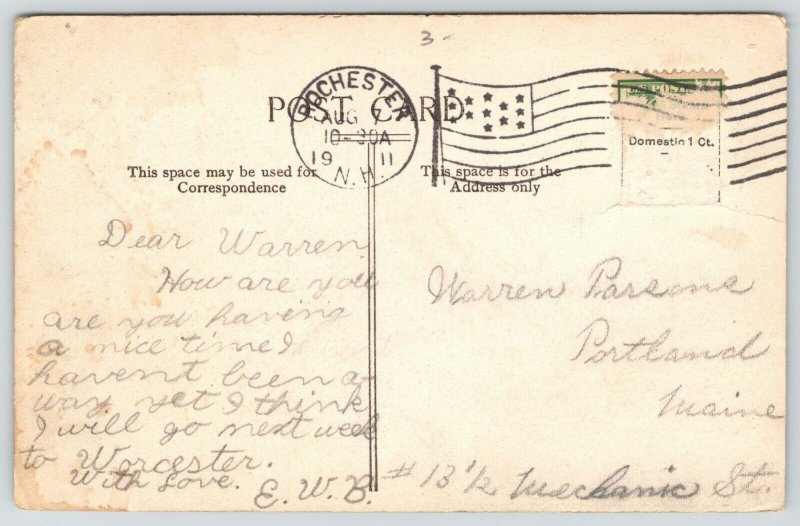 3-
POST CARD
ROCHESTER
AUG 7
10-30A
19 11
N.H.
Domestic 1 Ct.
This space may be used for
Correspondence
This space is for the
Address only
Dear Warren
How are you
are you having
a nice time I
havent been a-
way yet I think
I will go next week
to Worcester.
With Love.
E. W. B.
Warren Parsons
Portland
Maine
# 13 1/2 Mechanic St.